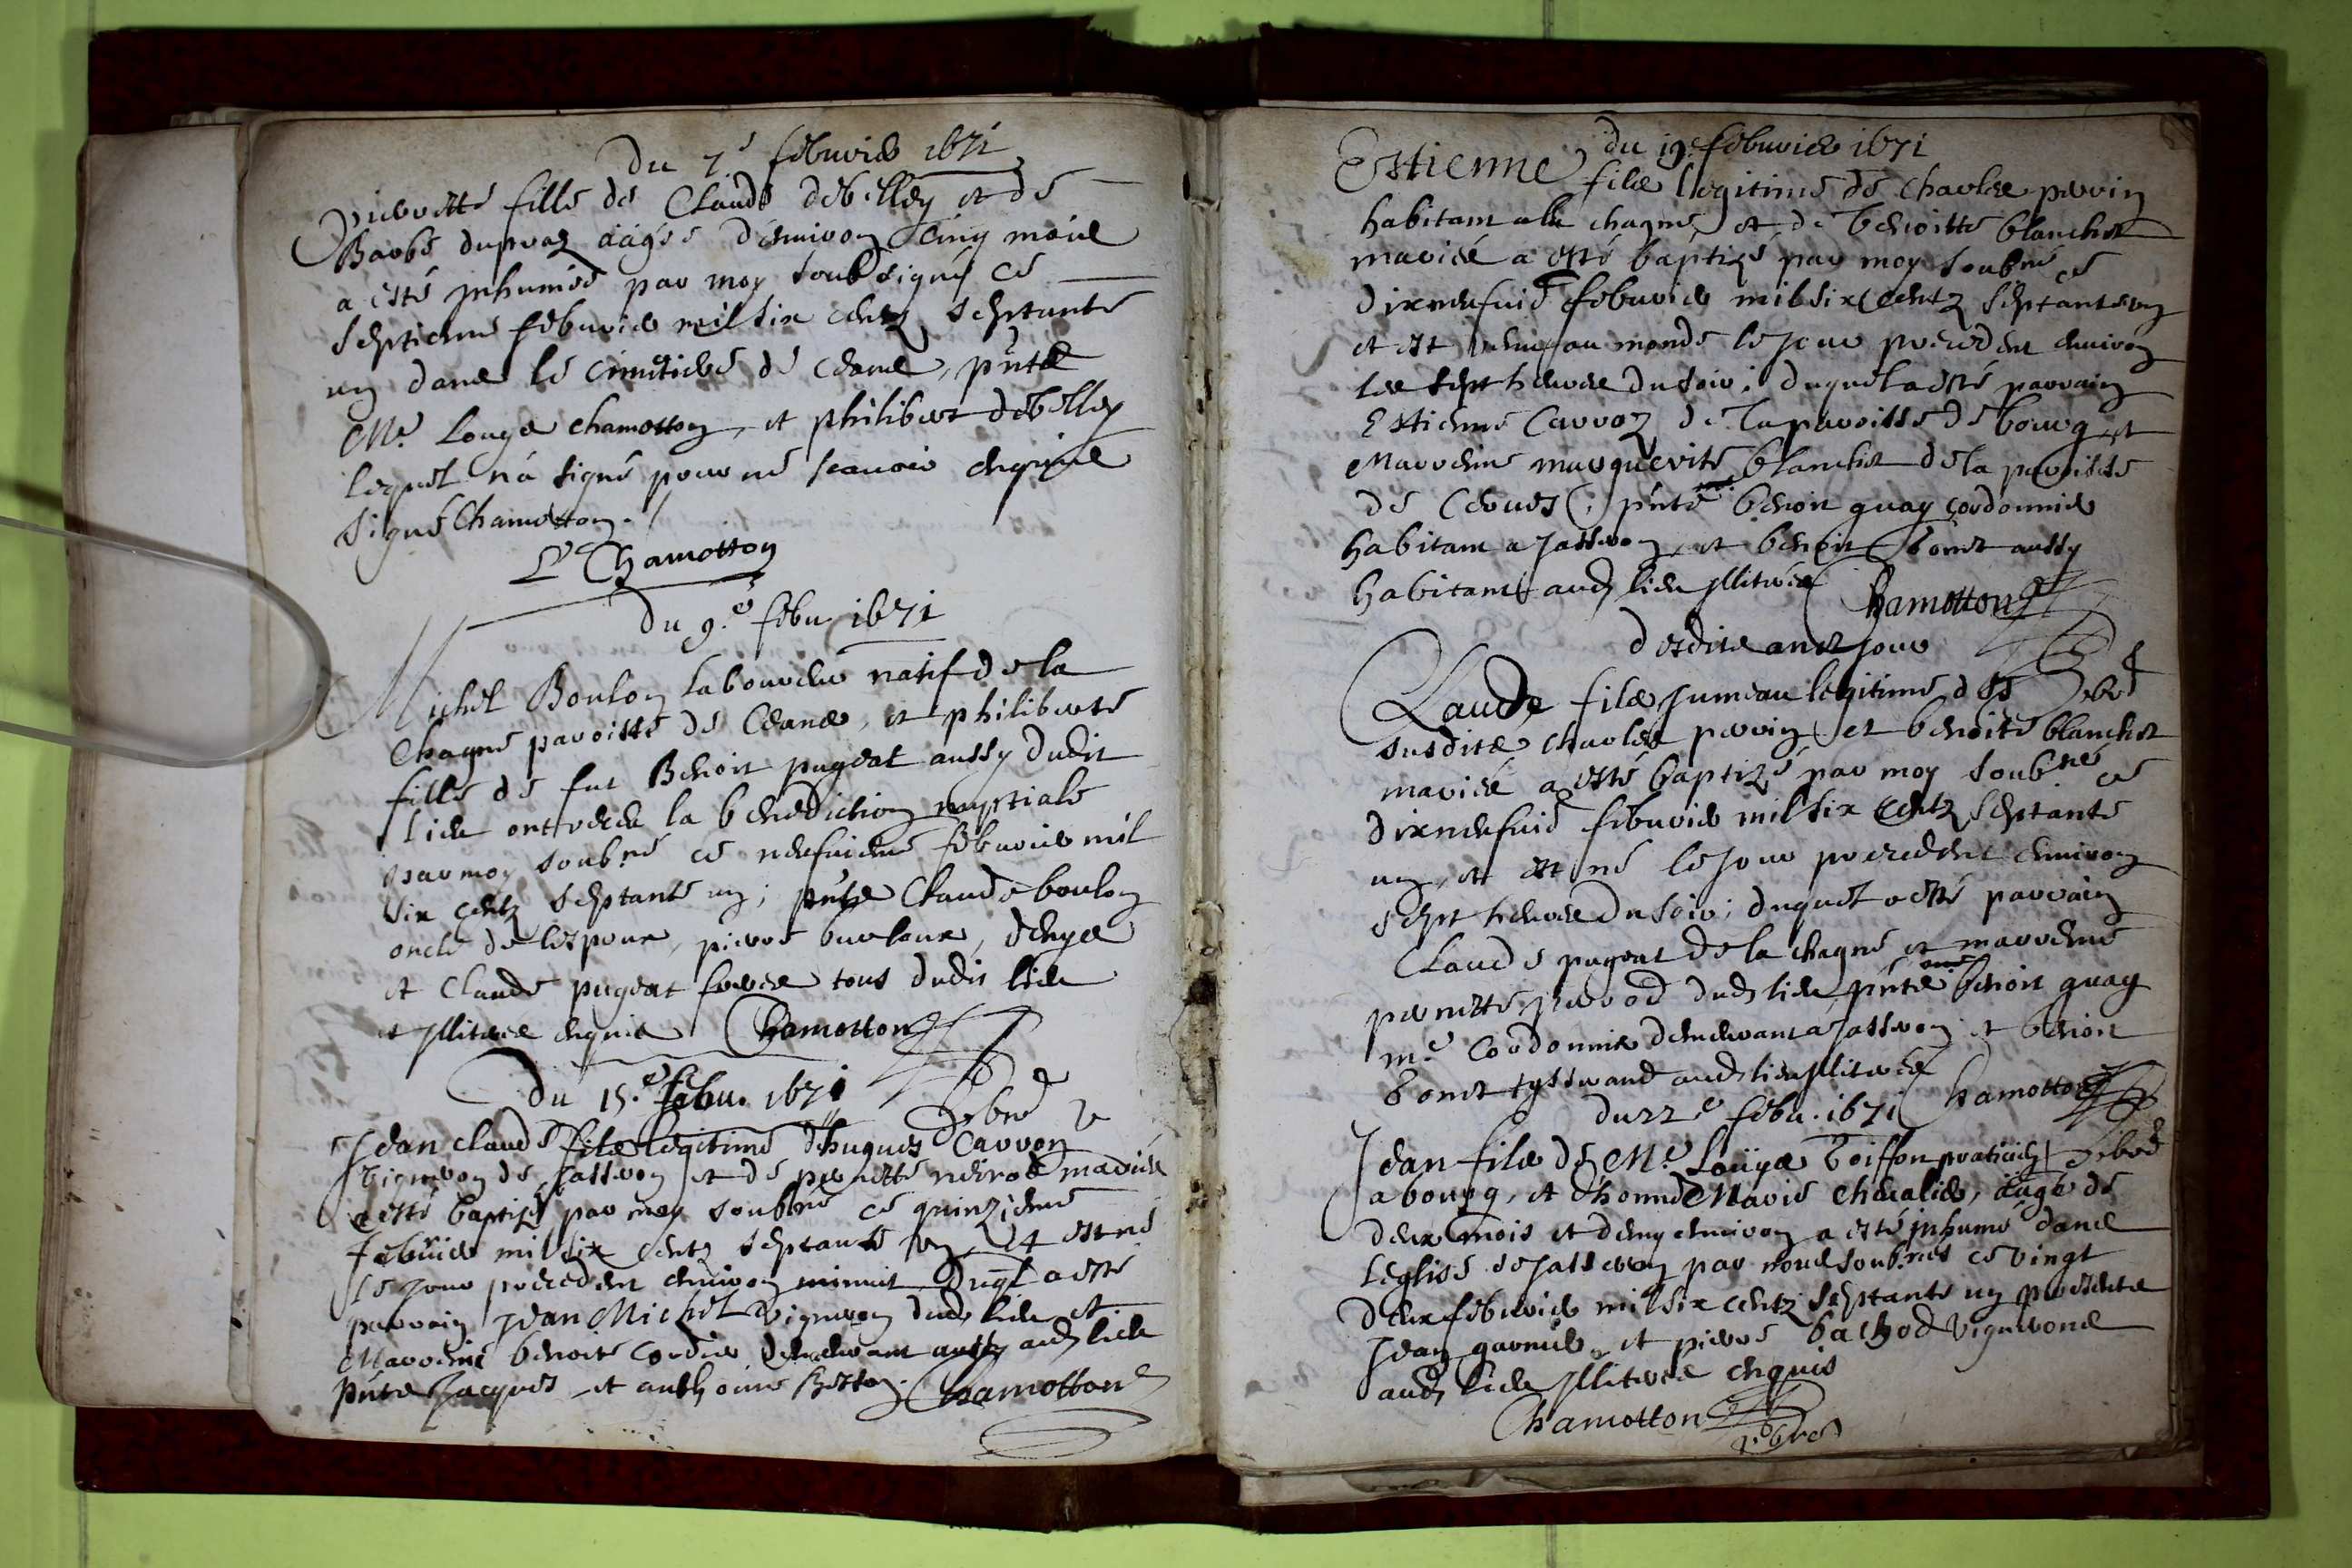 Du 7e febvrier 1671
Pierrette fille de Claude debelley et de
Barbe dupraz aagée d'environ cinq mois
a esté inhumée par moy soubsigné ce
septieme febvrier mil six centz septante
un dans le cimetiere de Ceans, pnts
Me. Louys Chamotton, et philibert debelley
lequel n'a signé pour ne scavoir enquis
signé Chamotton.
L Chamotton
Du 9.e febv. 1671
Michel Boulon laboureur natif de la
Chagne paroisse de Ceans, et philiberte
fille de fut Benoit pugeat aussy dudit
lieu ont receu la benediction nuptiale
par moy soubné ce neufvieme febvrier mil
six centz septante un; pnts Claude boulon
oncle de lespoux, pierre burloux, denys
et Claude pugeat freres tous dudit lieu
et illiteres enquis Chamotton
Du 15.e febv. 1671
Jean Claude fils legitime d'hugues Carron
vigneron de Jasseron et de pernette maries
a esté baptizé par moy soubné ce quinzieme
febvrier mil six centz septante un, et est né
le jour precedent environ minuit duql a esté
parrain Jean Michel vigneron dud lieu et
Marreine benoite Cordier demeurant aussy aud lieu
pnts Jacques et anthoine Chamotton
Du 19.e febvrier 1671
Estienne fils legitime de Charles perrin
habitant a la chagne, et de benoitte blanchet
mariés a esté baptizé par moy soubné ce
dixneufvie febvrier mil six centz septante un
et est venu au monde le jour precedent environ
les sept heures du soir; duquel a esté parrain
Estienne Carroz de la paroisse de bourg et
Marreine marguerite blanchet de la paroisse
de; pnts benoit guay cordonnier
habitant a Jasseron, et benoit bonet aussy
habitant aud lieu illiteres Chamotton
desdits an et jour
Claude fils jumeau legitime des
susdits Charles perrin et benoite blanchet
mariés a esté baptizé par moy soubné ce
dixneufvie febvrier mil six centz septante
un, et est né le jour precedent environ
sept heures du soir; duquel a esté parrain
Claude pugeat de la chagne et marreine
pernette dud lieu pnts benoit guay
me cordonnier demeurant a Jasseron et benoit
bonet tysserand aud lieu illiteres Chamotton
du 22e febv. 1671
Jean fils de Me. Louys boisson praticien
a bourg, et d'honnê Marie chevalier, aagé de
deux mois et demy environ a esté inhumé dans
leglise de Jasseron par nous soubnés ce vingt
deux febvrier mil six centz septante un presents
Jean garnier, et pierre bachod vignerons
aud lieu illiteres enquis
Chamotton